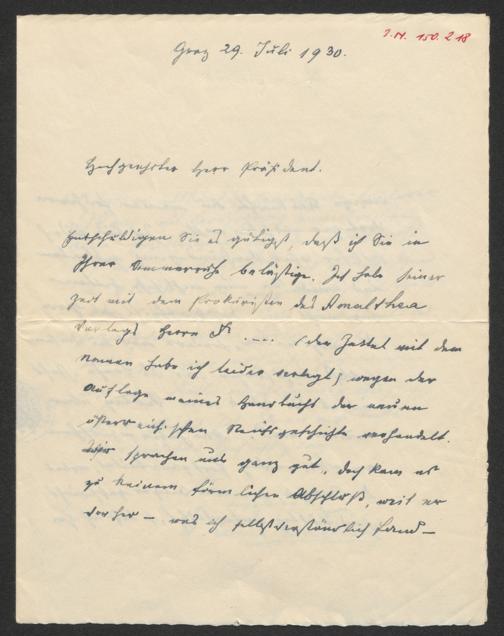 I.N. 150.218
Graz 29. Juli 1930.
Hochgeehrter Herr Präsident.
Entschuldigen Sie es gütigst, daß ich Sie in
Ihrer Sommerruhe belästige. Ich habe seiner
zeit mit dem Prokuristen des Amalthea
Verlags Herrn F. .... (den Zettel mit dem
Namen habe ich leider verlegt) wegen der
Auflage meines Handbuchs der neuen
österreichischen Reichsgeschichte verhandelt.
Wir sprachen uns ganz gut, doch kam es
zu keinem förmlichen Abschluß, weil er
vorher – was ich selbstverständlich fand –